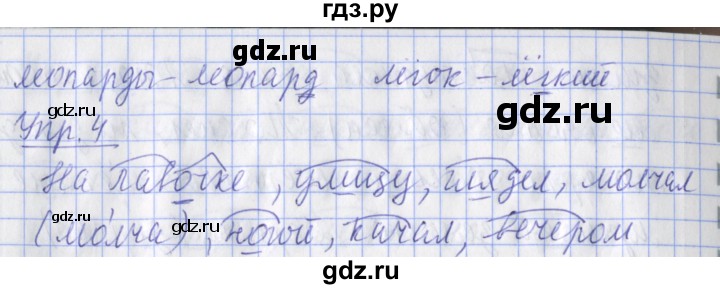 гдз.ру
gdz.ru
леопарды - леопард лёгок - лёгкий
gdz.ru gdz.ru
Упр. 4
gdz.ru gdz.ru
На лавочке, улицу, глядел, молчал
gdz.ru gdz.ru
(мо́лча), ногой, качал, вечером
gdz.ru gdz.ru